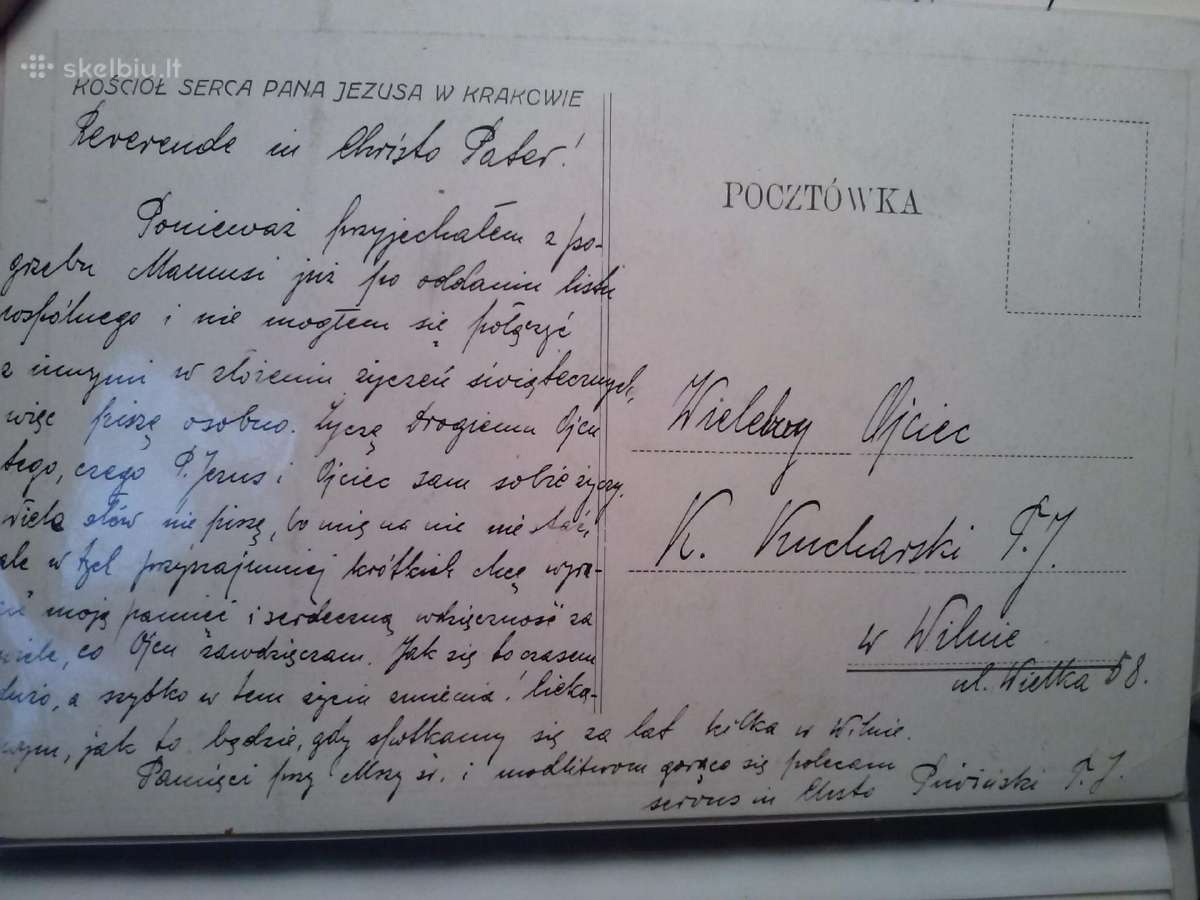 skelbiu.lt
KOŚCIÓŁ SERCA PANA JEZUSA W KRAKOWIE
Reverende in Christo Pater!
Ponieważ przyjechałem z po-
grzebu Mamusi już po oddaniu listu
wspólnego i nie mogłem się połączyć
z innymi w złożeniu życzeń świątecznych,
więc piszę osobno. Życzę Drogiemu Ojcu
tego, czego P. Jezus i Ojciec sam sobie życzy.
Wiele słów nie piszę, bo mię na nie nie stać,
ale w tych przynajmniej krótkich chcę wyra-
zić moją pamięć i serdeczną wdzięczność za
wiele, co Ojcu zawdzięczam. Jak się to czasem
dużo, a szybko w tem życiu zmienia! Cieka-
wym, jak to będzie, gdy spotkamy się za lat kilka w Wilnie.
Pamięci przy Mszy św. i modlitwom gorąco się polecam
servus in Chrsto T. J.
POCZTÓWKA
Wielebny Ojciec
K. Kucharski T. J.
w Wilnie
ul. Wielka 58.